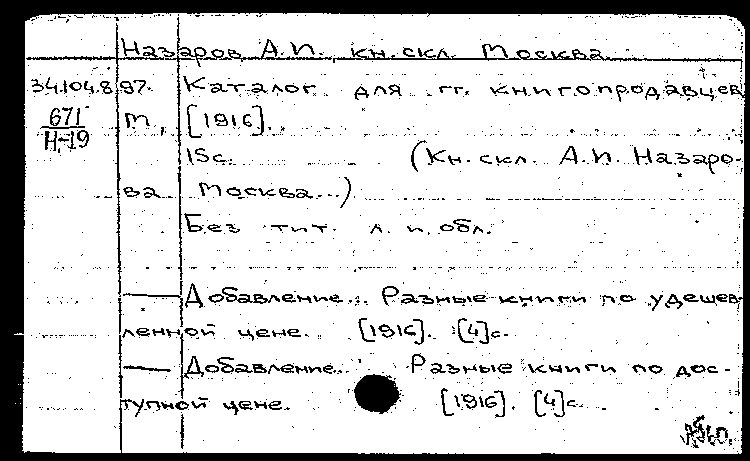 Назаров, А.П., кн. скл. Москва.
34.104.8.97. Каталог для гг. книгопродавцев
671 М., [1916].
Н-19
15с. (Кн. скл. А.П. Назаро-
ва Москва..)
Без тит. л. и обл.
— Добавление.. Разные книги по удешев-
ленной цене. [1916]. [4]с.
— Добавление.. Разные книги по дос-
тупной цене. [1916]. [4]с.